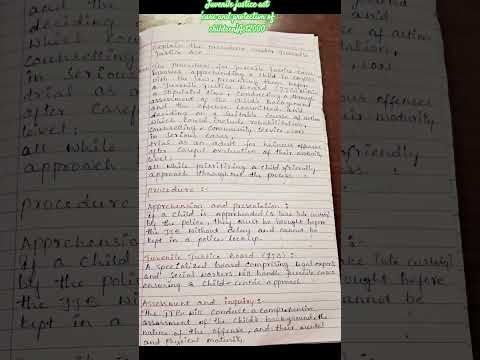 Juvenile justice act
care and protection of
children) Act 2000
Explain the procedure under Juvenile
Justice Act.
The procedure for Juvenile Justice cases
involves apprehending a child in conflict
with the law, presenting them before
a Juvenile Justice Board (JJB) within
a stipulated time, conducting a thorough
assessment of the child's background
and the offense committed, and
deciding on a suitable course of action
which could include rehabilitation,
counselling, community service, or
in serious cases,
trial as an adult for heinous offenses
after careful evaluation of their maturity
level;
all while prioritizing a child-friendly
approach throughout the process.
Procedure :-
Apprehension and presentation :
if a child is apprehended is
by the police, they must be brought before
the JJB without delay and cannot be
kept in a police lockup.
Juvenile Justice Board (JJB) :
A specialized board comprising legal experts
and social workers will handle juvenile cases
ensuring a child-centric approach
Assessment and inquiry :
the JJB will conduct a comprehensive
assessment of the child's background, the
nature of the offense, and their mental
and physical maturity